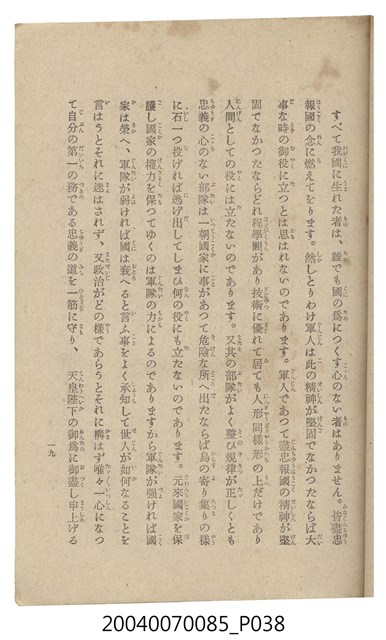 すべて我國に生れた者は、誰でも國の爲につくす心のない者はありません。皆盡忠
報國の念に燃えてをります。然しとりわけ軍人は此の精神が堅固でなかつたならば大
事な時の御役に立つとは思はれないのであります。軍人であつて盡忠報國の精神が堅
固でなかつたならどれ程學問があり技術に優れて居ても人形同樣形の上だけであり
人間としての役には立たないのであります。又其の部隊がよく整ひ規律が正しくとも
忠義の心のない部隊は一朝國家に事があつて危險な所へ出たならば烏の寄り集りの樣
に石一つ投げれば逃げ出してしまひ何の役にも立たないのであります。元來國家を保
護し國家の權力を保つてゆくのは軍隊の力によるのでありますから軍隊が强ければ國
家は榮へ、軍隊が弱ければ國は衰へると言ふ事をよく承知して世人が如何なることを
言はうとそれに迷はされず、又政治がどの樣であらうとそれに構はず唯々一心になつ
て自分の第一の務である忠義の道を一筋に守り、天皇陛下の御爲に御盡し申上げる
一九
20040070085_P038